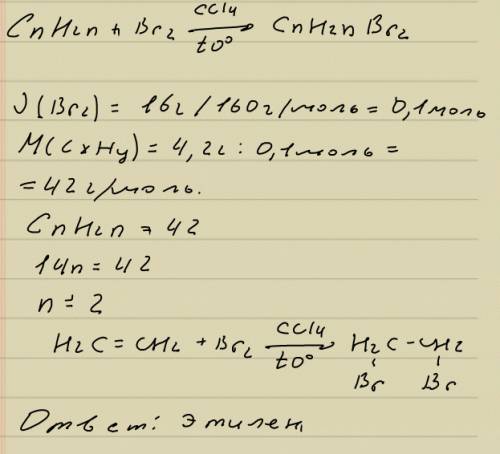 CnH2n + Br2 CCl4 t0° CnH2nBr2
ν(Br2) = 16г/160г/моль = 0,1моль
M(CxHy) = 4,2г : 0,1моль =
= 42г/моль.
CnH2n = 42
14n = 42
n = 2
H2C = CH2 + Br2 CCl4 t0° H2C - CH2
Br Br
Ответ: этилен